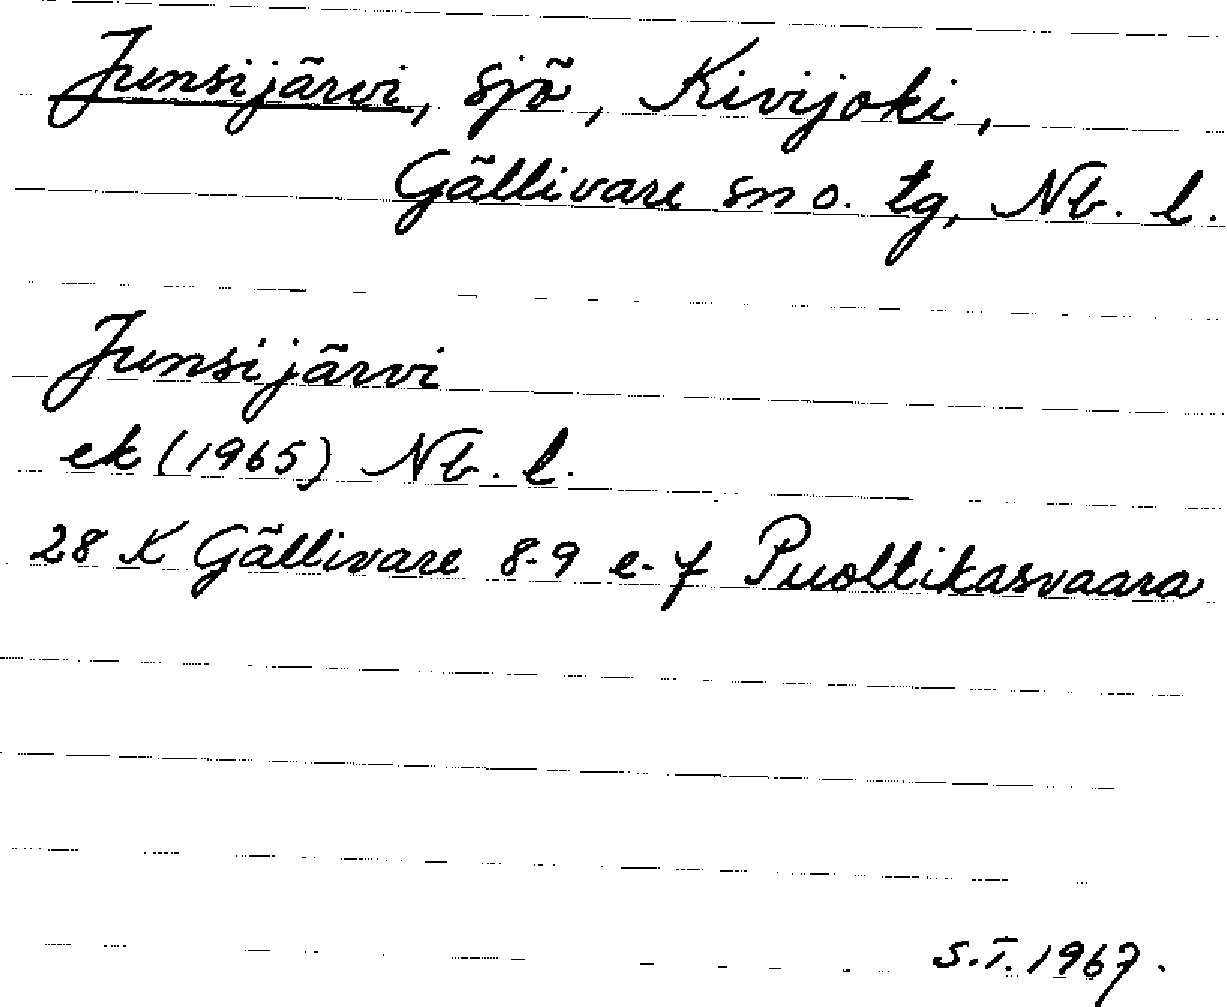 Junsijärvi, sjö, Kivijoki,
Gällivare sn o. tg, Nb. l.
Junsijärvi
ek (1965) Nb. l.
28 K Gällivare 8-9 e-f Puoltikasvaara
S.T. 1967.